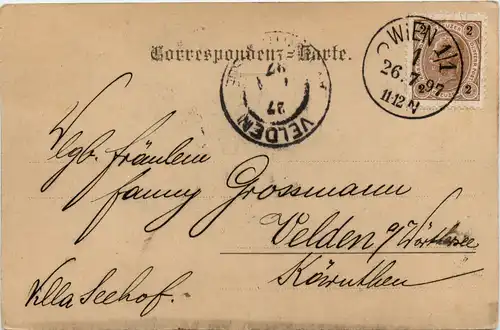 Correspondenz-Karte.
2 2
2 2
WIEN 1/1
1
26.7.97
11-12 N
VELDEN
27
97
Wlgb. Fräulein
Fanny Grossmann
Velden a/ Wörthersee
Kärnthen
Villa Seehof.